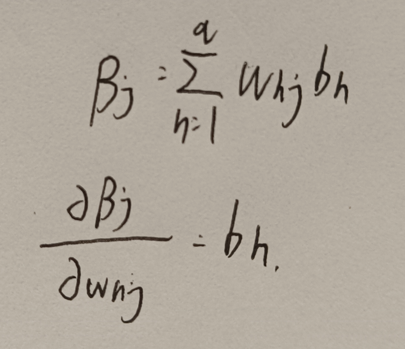 βj = Σ_{h=1}^{q} whj bh
∂βj / ∂whj = bh.